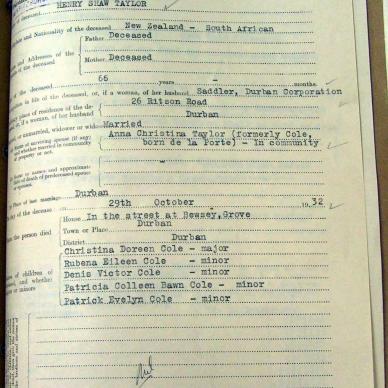 HENRY SHAW TAYLOR
and Nationality of the deceased New Zealand - South African
Father Deceased
and Addresses of the
of the deceased
Mother Deceased
66 years - months
the deceased
in life of the deceased, or, if a woman, of her husband Saddler, Durban Corporation
place of residence of the de-
if a woman, of her husband
26 Ritson Road
Durban
or unmarried, widower or wid Married
name of surviving spouse (if any)
whether married in community
of property or not.
Anna Christina Taylor (formerly Cole,
born de la Porte) - In community
or names and approximate
of death of predeceased spouse
or spouses.
-
Place of last marriage Durban
day of the decease 29th October 1932
the person died
House In the street at Bewsey, Grove
Town or Place Durban
District Durban
of children of
deceased, and whether
or minors
Christina Doreen Cole - major
Rubena Eileen Cole - minor
Denis Victor Cole - minor
Patricia Colleen Bawn Cole - minor
Patrick Evelyn Cole - minor